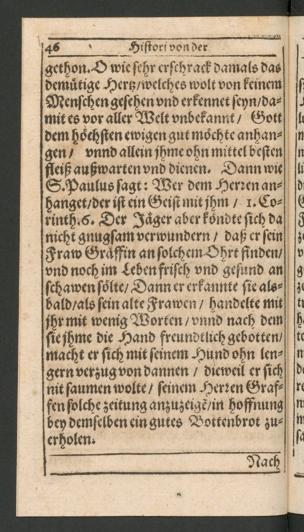 46 Histori von der
gethon. O wie sehr erschrack damals das
demütige Hertz/welches wolt von keinem
Menschen gesehen vnd erkennet seyn/da-
mit es vor aller Welt vnbekannt/ Gott
dem höchsten ewigen gut möchte anhan-
gen/ vnnd allein jhme ohn mittel besten
fleiß außwarten vnd dienen. Dann wie
S. Paulus sagt: Wer dem Herren an-
hanget/der ist ein Geist mit jhm / 1. Co-
rinth. 6. Der Jäger aber köndte sich da
nicht gnugsam verwundern / daß er sein
Fraw Gräffin an solchem Ohrt finden/
vnd noch im Leben frisch vnd gesund an
schawen sölte/ Dann er erkannte sie als-
bald/als sein alte Frawen/ handelte mit
jhr mit wenig Worten/vnnd nach dem
sie jhme die Hand freundtlich gebotten/
macht er sich mit seinem Hund ohn len-
gern verzug von dannen / dieweil er sich
nit saumen wolte/ seinem Herren Graf-
fen solche zeitung anzuzeigē/in hoffnung
bey demselben ein gutes Bottenbrot zu-
erholen.
Nach